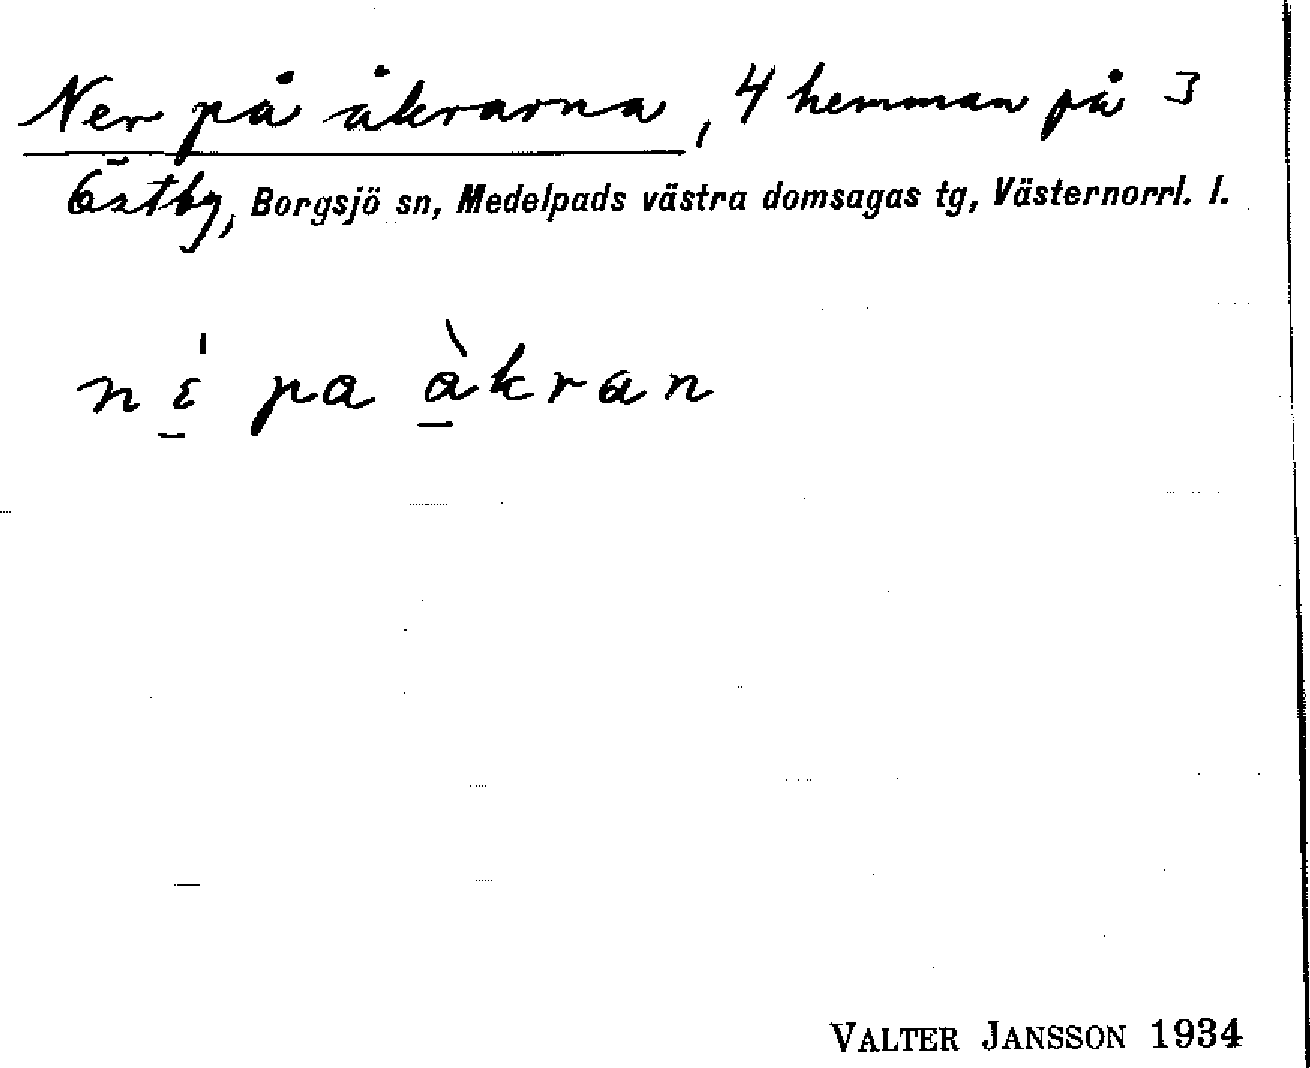 Ner på åkrarna, 4 hemman på 3
Östby, Borgsjö sn, Medelpads västra domsagas tg, Västernorrl. l.
nɛ́ pa àkran
VALTER JANSSON 1934